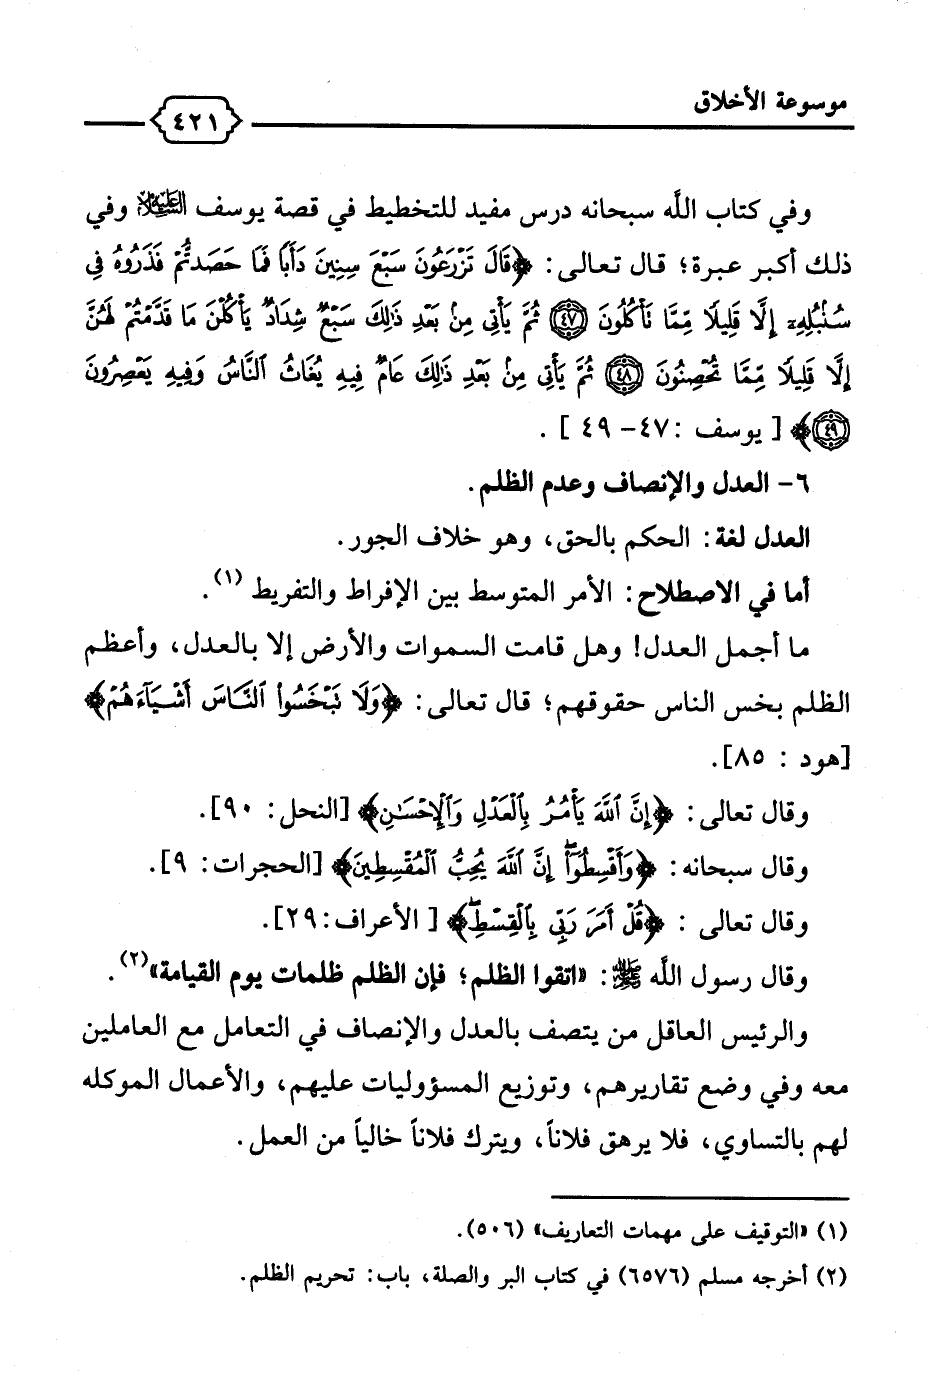 موسوعة الأخلاق
٤٢١
وفي كتاب اللَّه سبحانه درس مفيد للتخطيط في قصة يوسف عليه السلام وفي
ذلك أكبر عبرة؛ قال تعالى: ﴿قَالَ تَزْرَعُونَ سَبْعَ سِنِينَ دَأَبًا فَمَا حَصَدتُّمْ فَذَرُوهُ فِى
سُنۢبُلِهِۦٓ إِلَّا قَلِيلًا مِّمَّا تَأْكُلُونَ ٤٧ ثُمَّ يَأْتِى مِنۢ بَعْدِ ذَٰلِكَ سَبْعٌ شِدَادٌ يَأْكُلْنَ مَا قَدَّمْتُمْ لَهُنَّ
إِلَّا قَلِيلًا مِّمَّا تُحْصِنُونَ ٤٨ ثُمَّ يَأْتِى مِنۢ بَعْدِ ذَٰلِكَ عَامٌ فِيهِ يُغَاثُ ٱلنَّاسُ وَفِيهِ يَعْصِرُونَ
٤٩﴾ [ يوسف :٤٧- ٤٩ ] .
٦- العدل والإنصاف وعدم الظلم.
العدل لغة: الحكم بالحق، وهو خلاف الجور.
أما في الاصطلاح: الأمر المتوسط بين الإفراط والتفريط (١).
ما أجمل العدل! وهل قامت السموات والأرض إلا بالعدل، وأعظم
الظلم بخس الناس حقوقهم؛ قال تعالى: ﴿وَلَا تَبْخَسُوا۟ ٱلنَّاسَ أَشْيَآءَهُمْ﴾
[هود : ٨٥].
وقال تعالى: ﴿إِنَّ ٱللَّهَ يَأْمُرُ بِٱلْعَدْلِ وَٱلْإِحْسَـٰنِ﴾ [النحل: ٩٠].
وقال سبحانه: ﴿وَأَقْسِطُوٓا۟ۖ إِنَّ ٱللَّهَ يُحِبُّ ٱلْمُقْسِطِينَ﴾ [الحجرات: ٩].
وقال تعالى : ﴿قُلْ أَمَرَ رَبِّى بِٱلْقِسْطِۖ﴾ [ الأعراف:٢٩].
وقال رسول اللَّه ﷺ: «اتقوا الظلم؛ فإن الظلم ظلمات يوم القيامة»(٢).
والرئيس العاقل من يتصف بالعدل والإنصاف في التعامل مع العاملين
معه وفي وضع تقاريرهم، وتوزيع المسؤوليات عليهم، والأعمال الموكله
لهم بالتساوي، فلا يرهق فلاناً، ويترك فلاناً خالياً من العمل.
(١) «التوقيف على مهمات التعاريف» (٥٠٦).
(٢) أخرجه مسلم (٦٥٧٦) في كتاب البر والصلة، باب: تحريم الظلم.